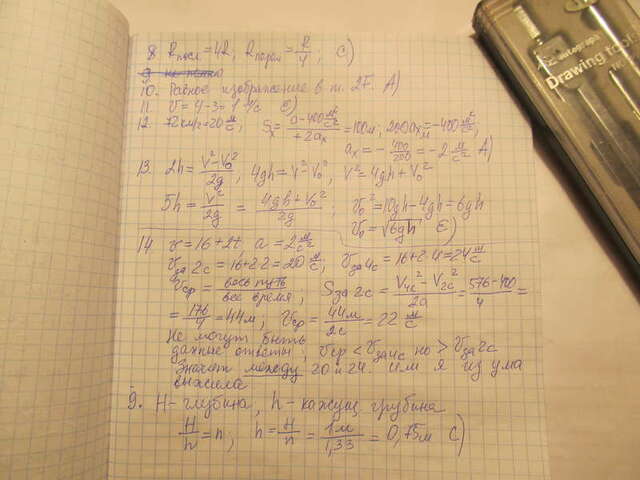 8 Rпосл=4R, Rпарал=R/4; C)
10. Равное изображение в т. 2F. A)
11 V=4-3=1 м/с E)
12. 72 км/ч=20 м/с, Sx=(0-400 м²/с²)/(+2ax)=100м; 200ax=-400 м²/с²,
ax=-400/200=-2 м/с² A)
13. 2h=(V²-V0²)/2g, 4gh=V²-V0², V²=4gh+V0²
5h=V²/2g=(4gh+V0²)/2g; V0²=10gh-4gh=6gh
V0=√6gh E)
14 v=16+2t a=2 м/с²
Vза 2с=16+2·2=20 м/с, Vза 4с=16+2·4=24 м/с
Vср=весь путь/все время; Sза 2с=(V4с²-V2с²)/2a=(576-400)/4=
=176/4=44м; Vср=44м/2с=22 м/с
Не могут быть
данные ответы, Vср<Vза 4с но >Vза 2с
Значит между 20 и 24 или я из ума
выжила
9. H-глубина, h-кажущ. глубина
H/h=n; h=H/n=1м/1,33=0,75м C)
autograph
Drawing